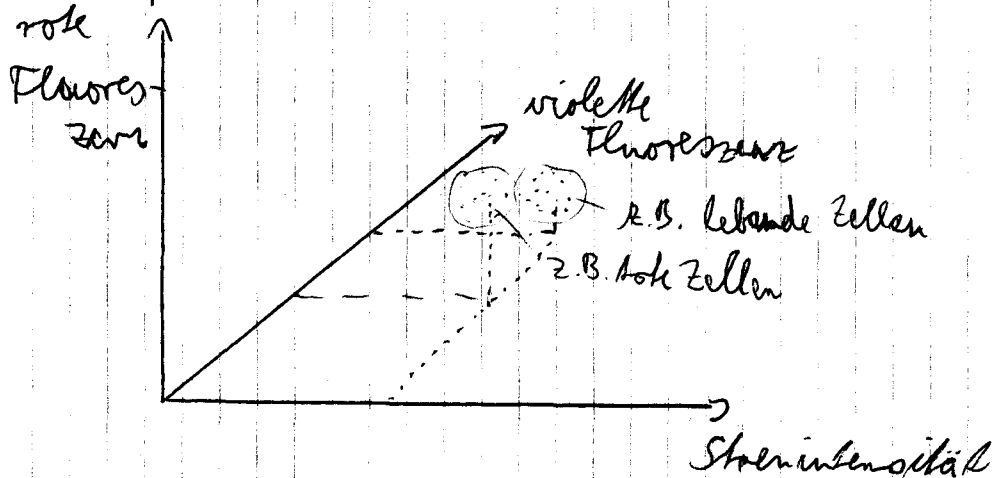 rote
Fluores-
zenz
violette
Fluoreszenz
z.B. lebende Zellen
z.B. tote Zellen
Streuintensität